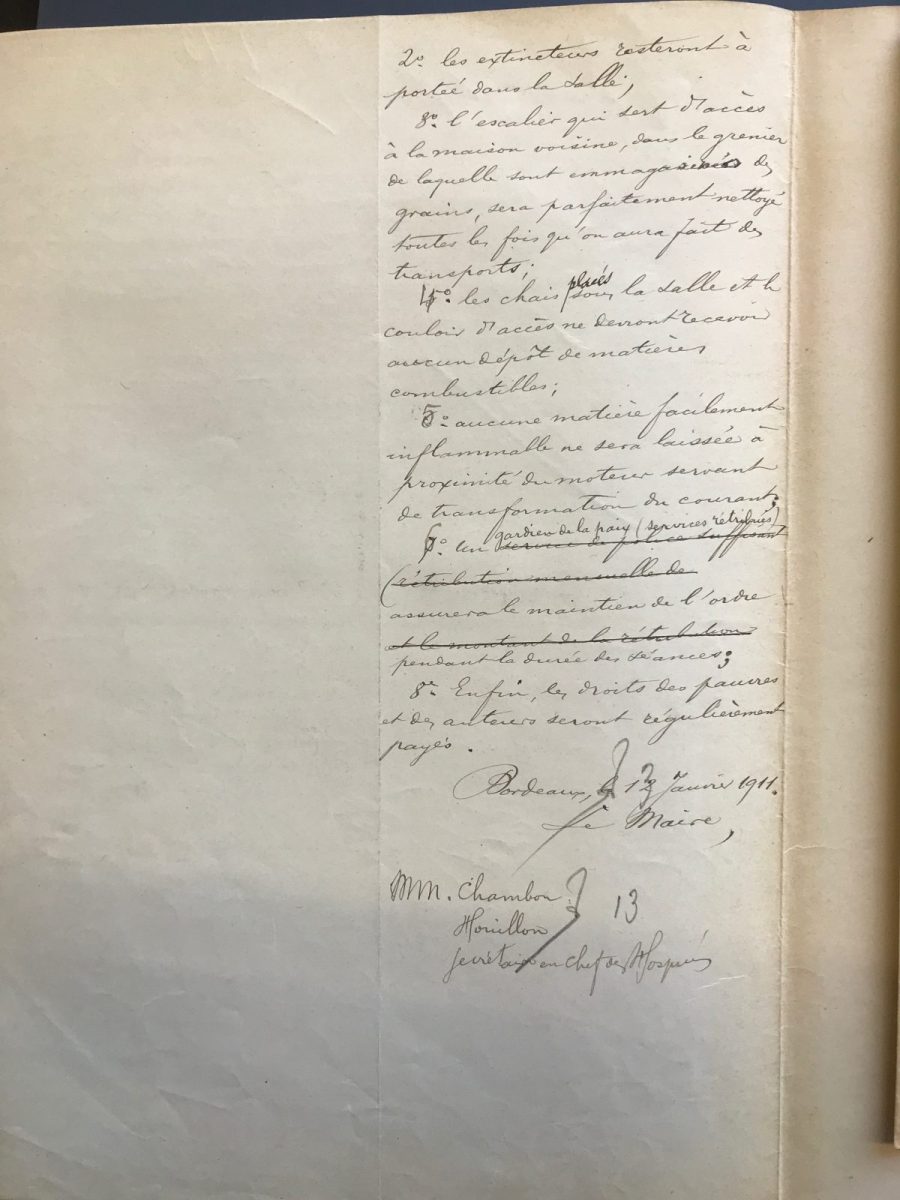 2º les extincteurs resteront à
porteé dans la salle;
3º. l'escalier qui sert d'accès
à la maison voisine, dans le grenier
de laquelle sont emmagasinés des
grains, sera parfaitement nettoyé
toutes les fois qu'on aura fait des
transports;
4º. les chais placés sous la salle et le
couloir d'accès ne devront recevoir
aucun dépôt de matières
combustibles;
5º. aucune matière facilement
inflammable ne sera laissée à
proximité du moteur servant
de transformation du courant;
gardien de la paix (services rétribués)
6º. un service de police suffisant
(rétribution mensuelle de
assurera le maintien de l'ordre
et le montant de la rétribution
pendant la durée des séances;
8º. Enfin, les droits des pauvres
et des auteurs seront régulièrement
payés.
Bordeaux, le 13 Janvier 1911.
Le Maire,
MM. Chambon
13
Houillon
Secrétaire en chef des Hospices